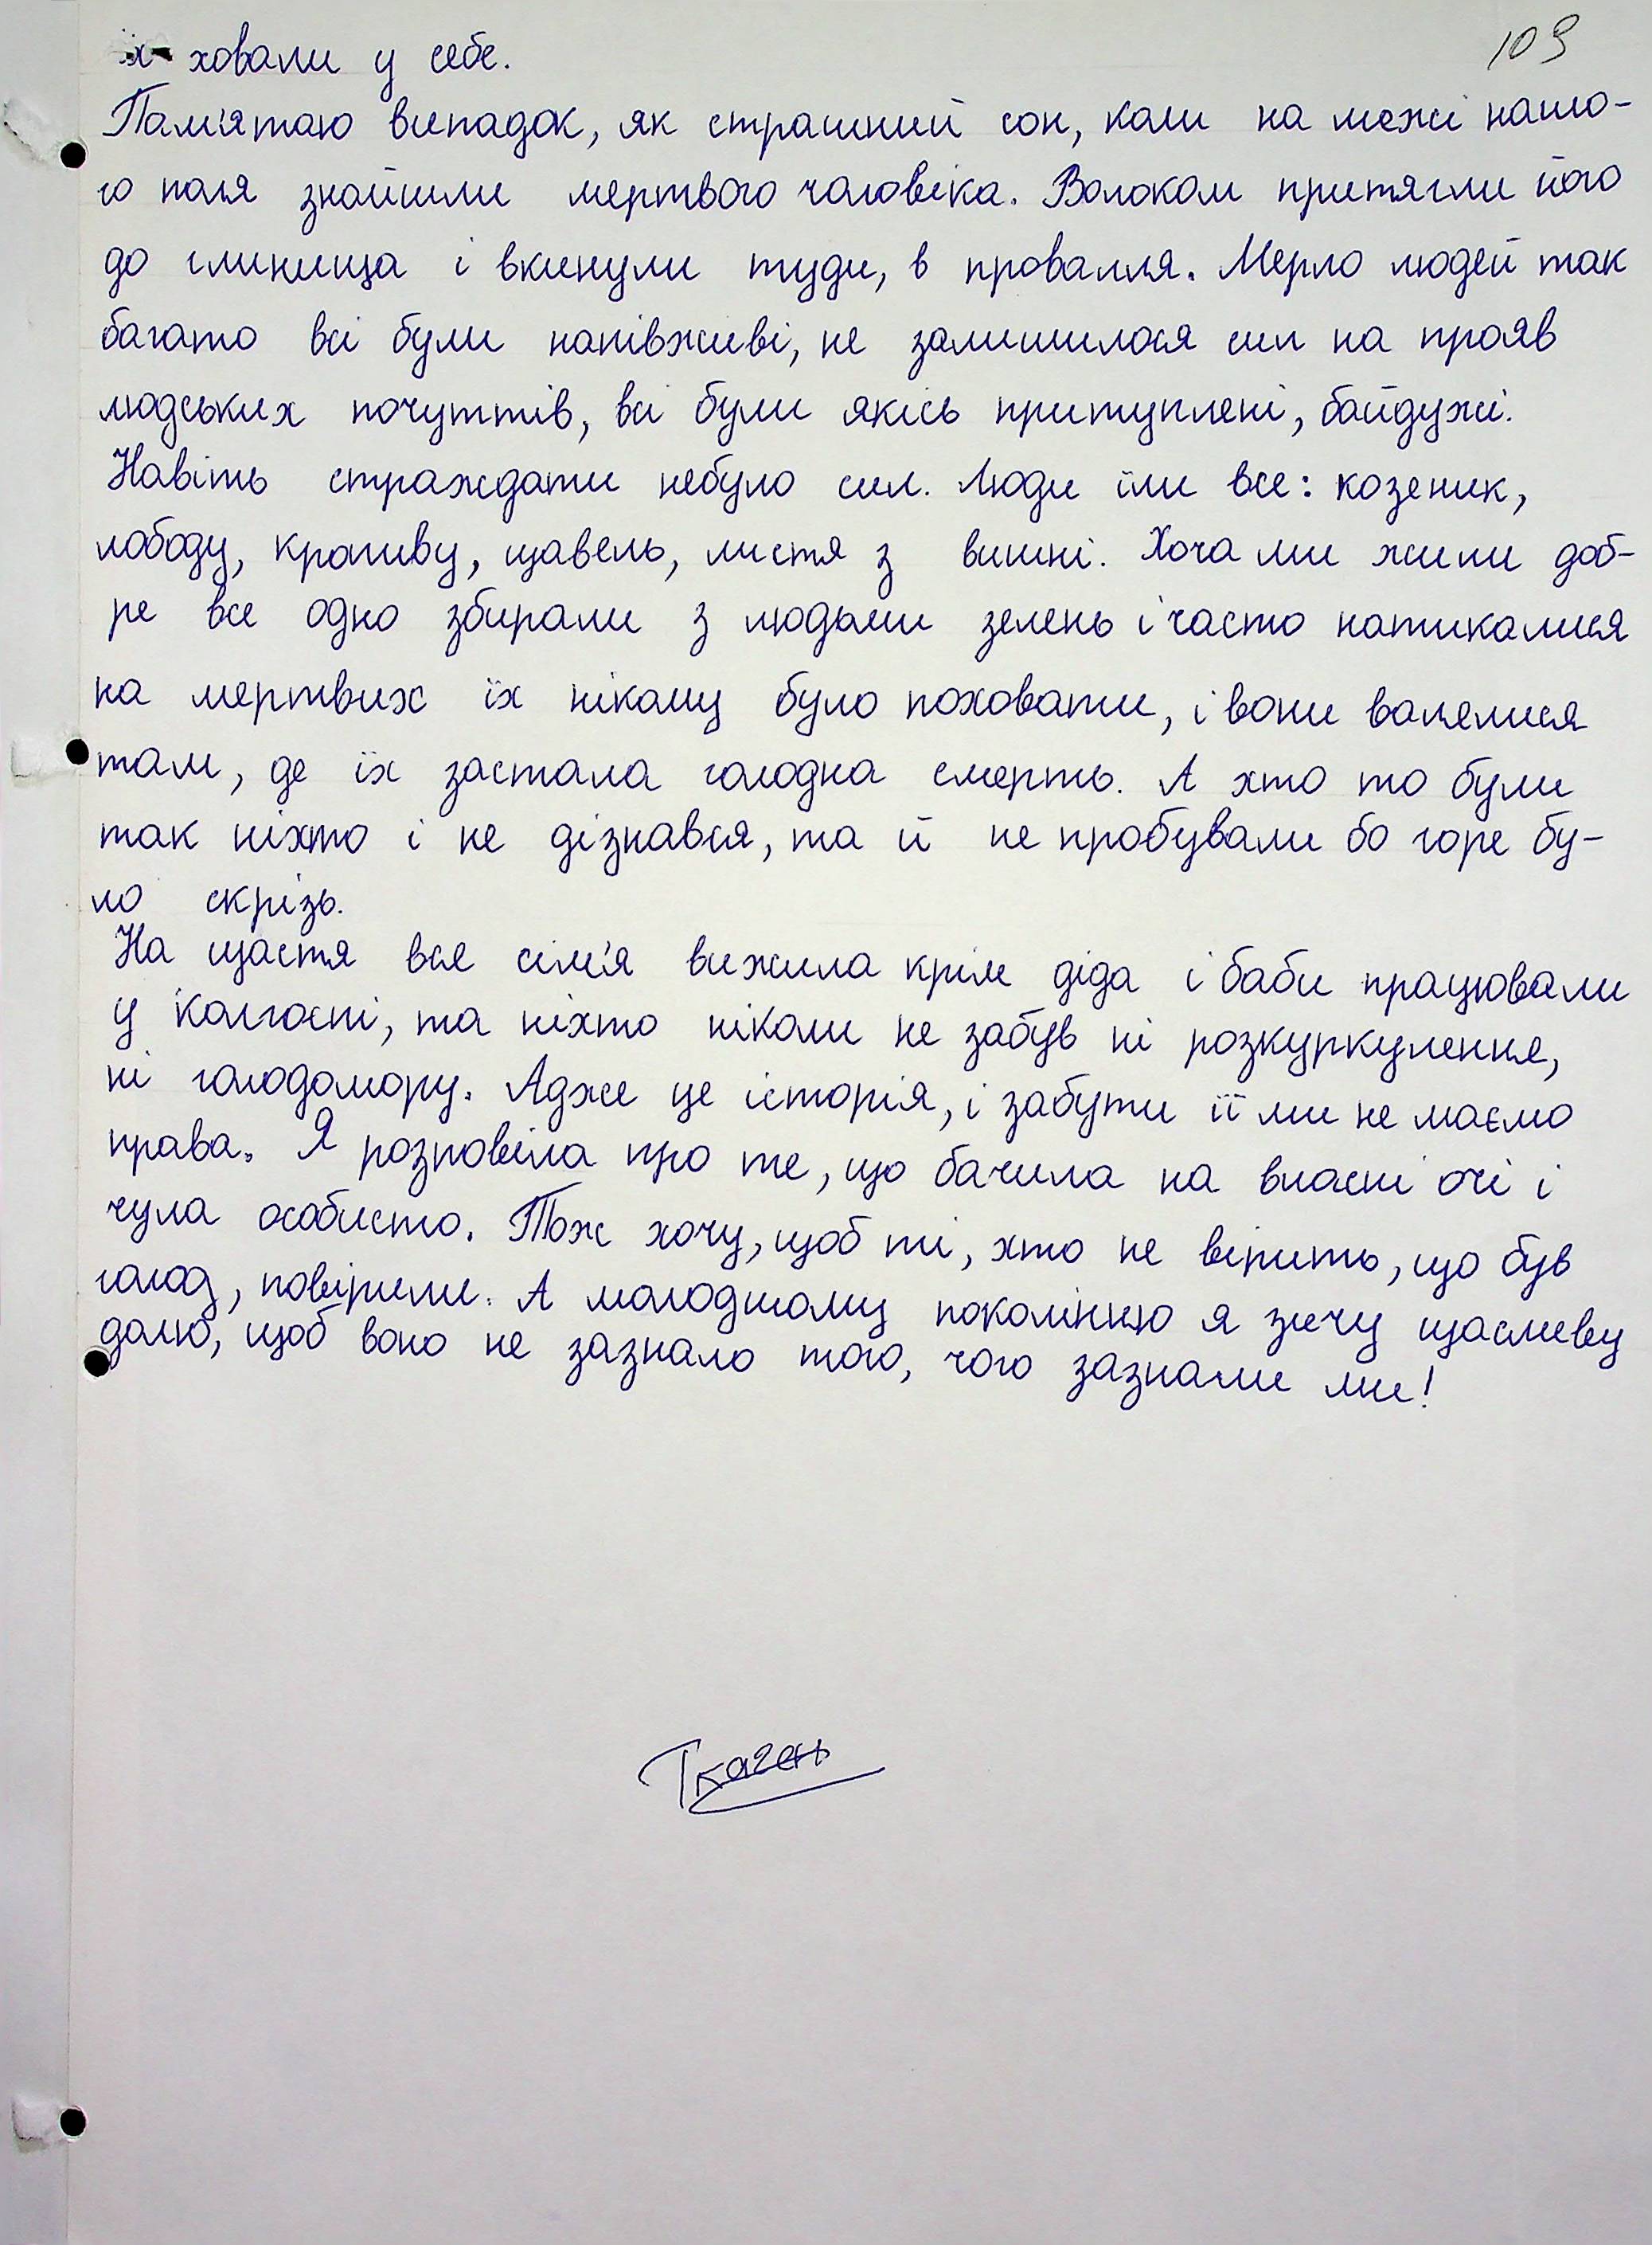 109
їх ховали у себе.
Пам'ятаю випадок, як страшний сон, коли на межі нашо-
го поля знайшли мертвого чоловіка. Волоком притягли його
до глинища і вкинули туди, в провалля. Мерло людей так
багато всі були напівживі, не залишилося сил на прояв
людських почуттів, всі були якісь притуплені, байдужі.
Навіть страждати небуло сил. Люди їли все: козеник,
лободу, кропиву, щавель, листя з вишні. Хоча ми жили доб-
ре все одно збирали з людьми зелень і часто натикалися
на мертвих їх нікому було поховати, і вони валялися
там, де їх застала голодна смерть. А хто то були
так ніхто і не дізнався, та й не пробували бо горе бу-
ло скрізь.
На щастя вся сім'я вижила крім діда і баби працювали
у колгоспі, та ніхто ніколи не забув ні розкуркулення,
ні голодомору. Адже це історія, і забути її ми не маємо
права. Я розповіла про те, що бачила на власні очі і
чула особисто. Тож хочу, щоб ті, хто не вірить, що був
голод, повірили. А молодшому поколінню я зичу щасливу
долю, щоб воно не зазнало того, чого зазнали ми!